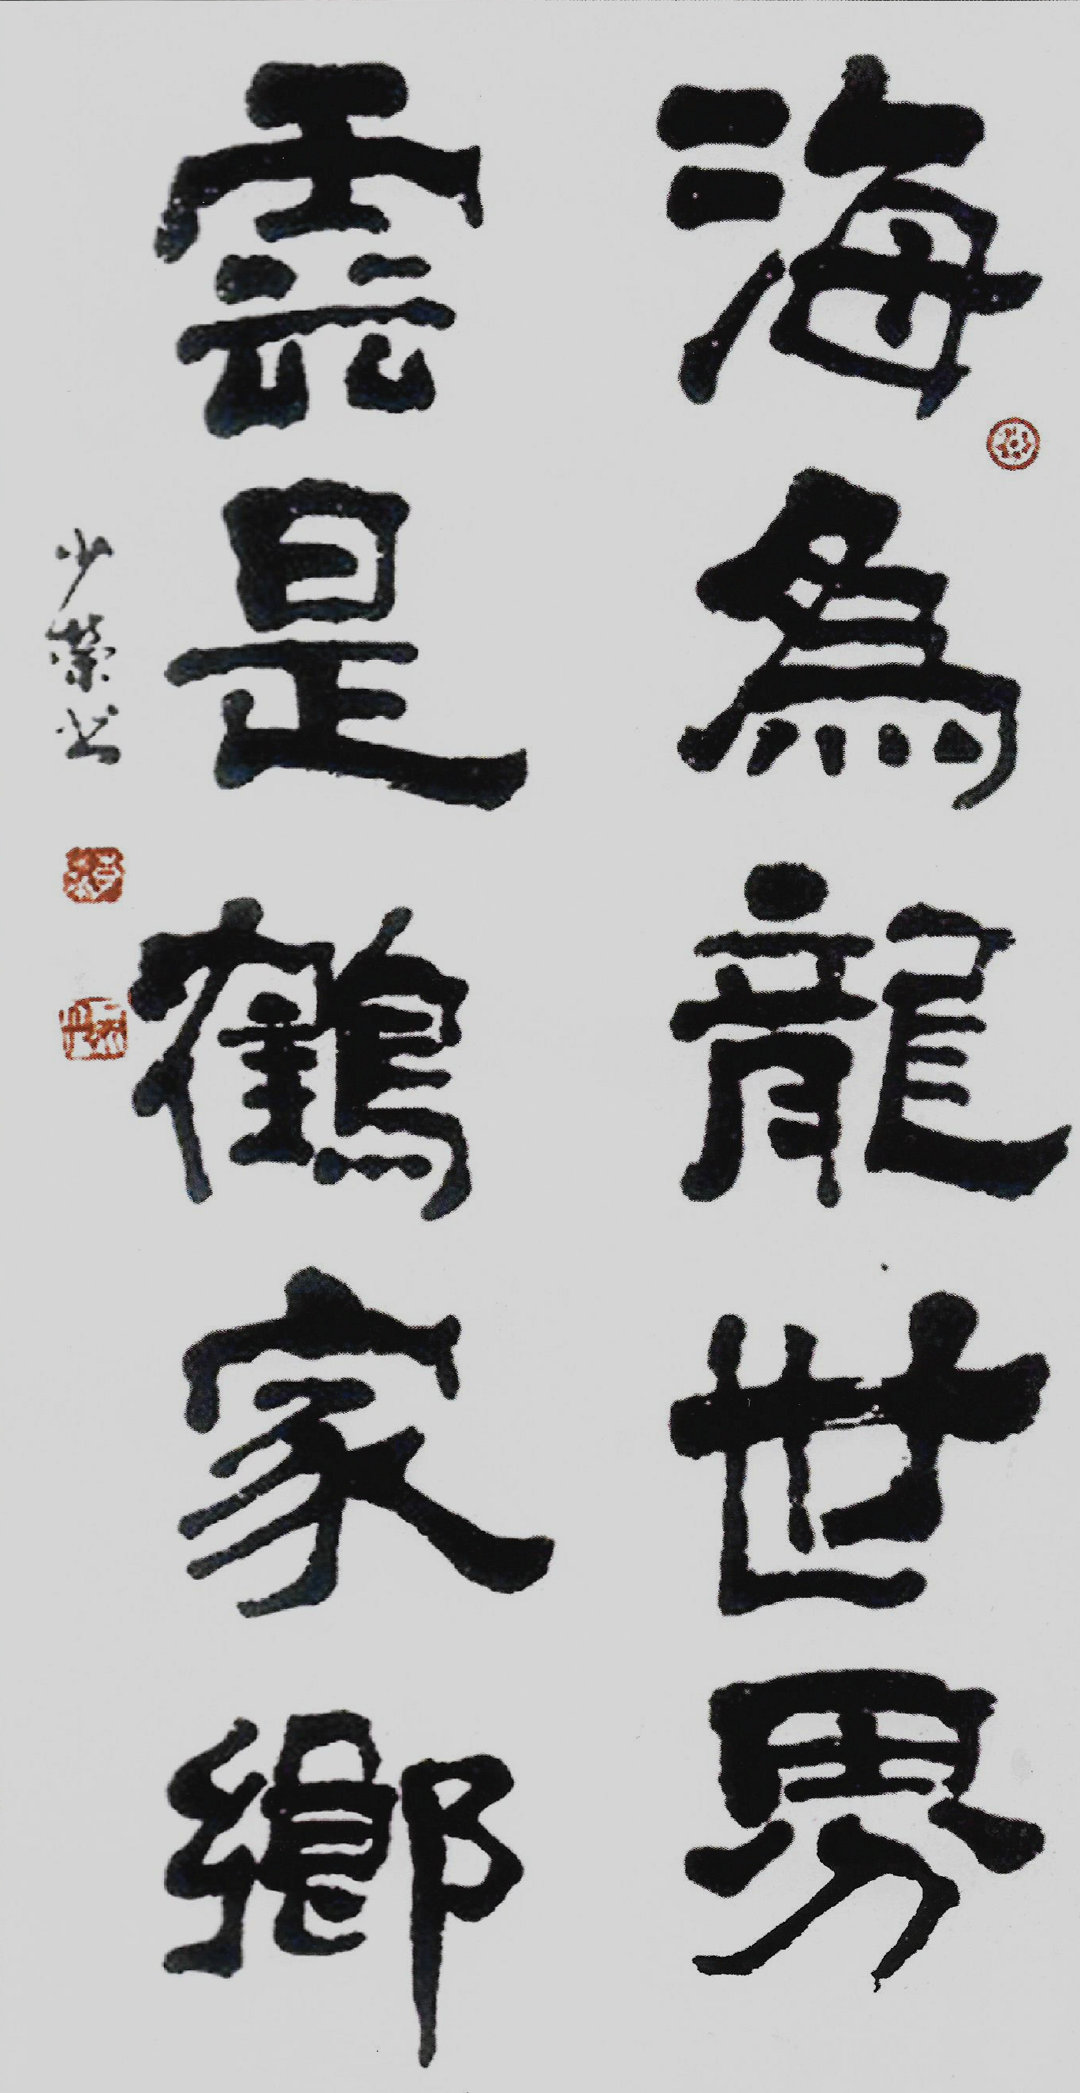 海為龍世界
雲是鶴家鄉
少榮书